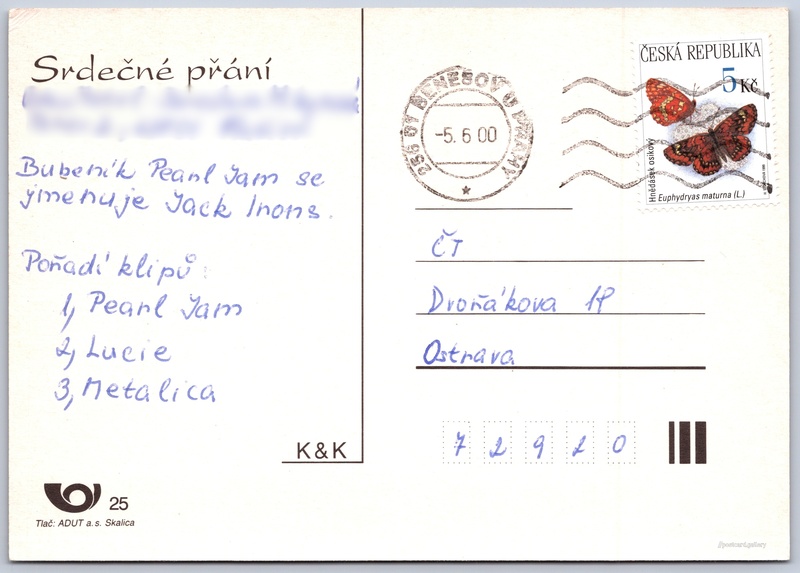 Srdečné přání
Bubeník Pearl Jam se
jmenuje Jack Inons.
Pořadí klipů:
1, Pearl Jam
2, Lucie
3, Metalica
K & K
25
Tlač: ADUT a.s. Skalica
256 01 BENEŠOV U PRAHY
-5.6.00
ČESKÁ REPUBLIKA
5 Kč
Hnědásek osikový
Euphydryas maturna (L.)
ČT
Dvořákova 18
Ostrava
72920